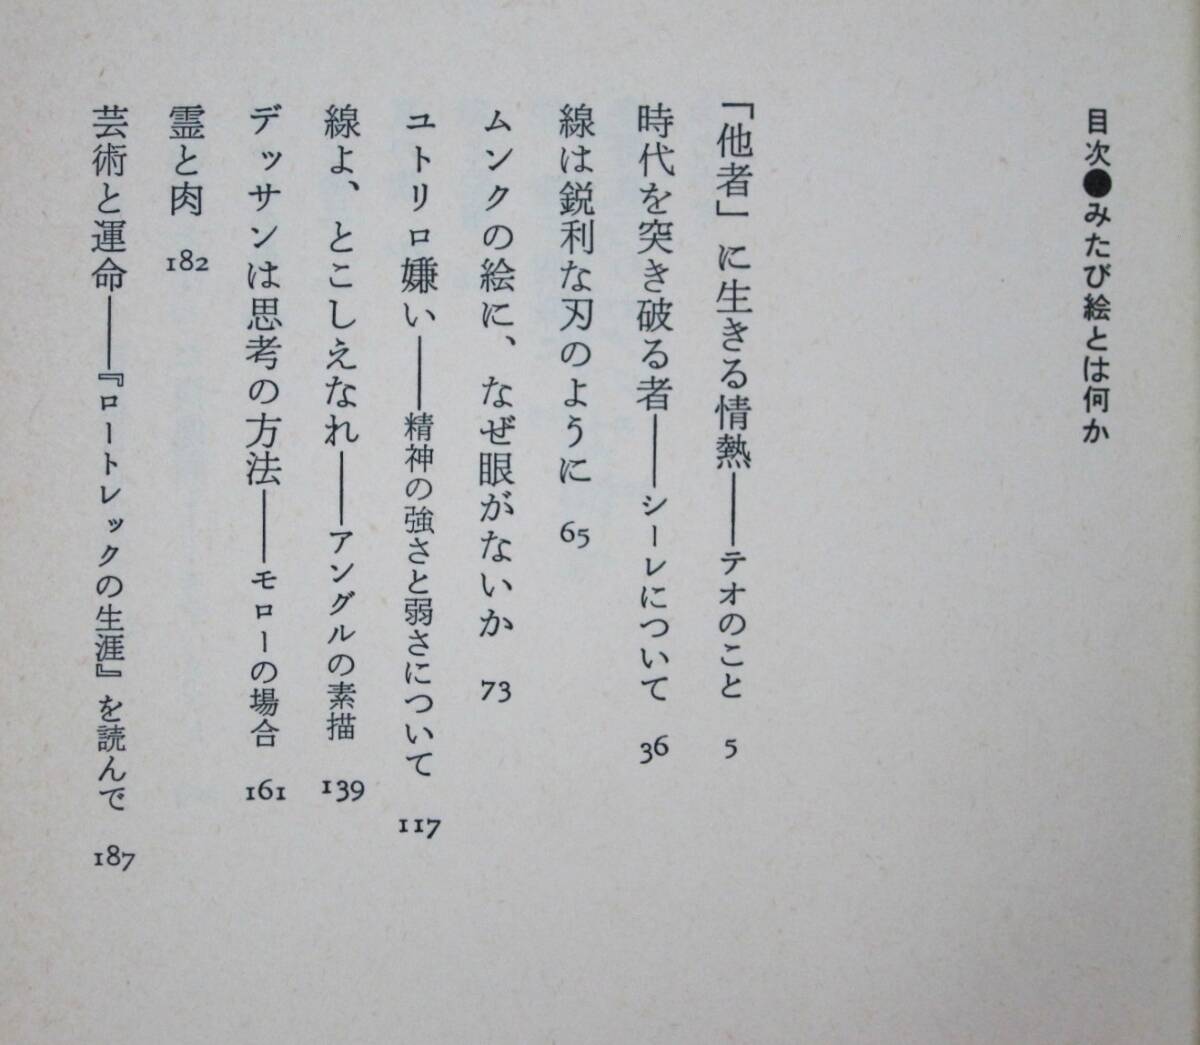 目次●みたび絵とは何か
「他者」に生きる情熱――テオのこと 5
時代を突き破る者――シーレについて 36
線は鋭利な刃のように 65
ムンクの絵に、なぜ眼がないか 73
ユトリロ嫌い――精神の強さと弱さについて 117
線よ、とこしえなれ――アングルの素描 139
デッサンは思考の方法――モローの場合 161
霊と肉 182
芸術と運命――『ロートレックの生涯』を読んで 187